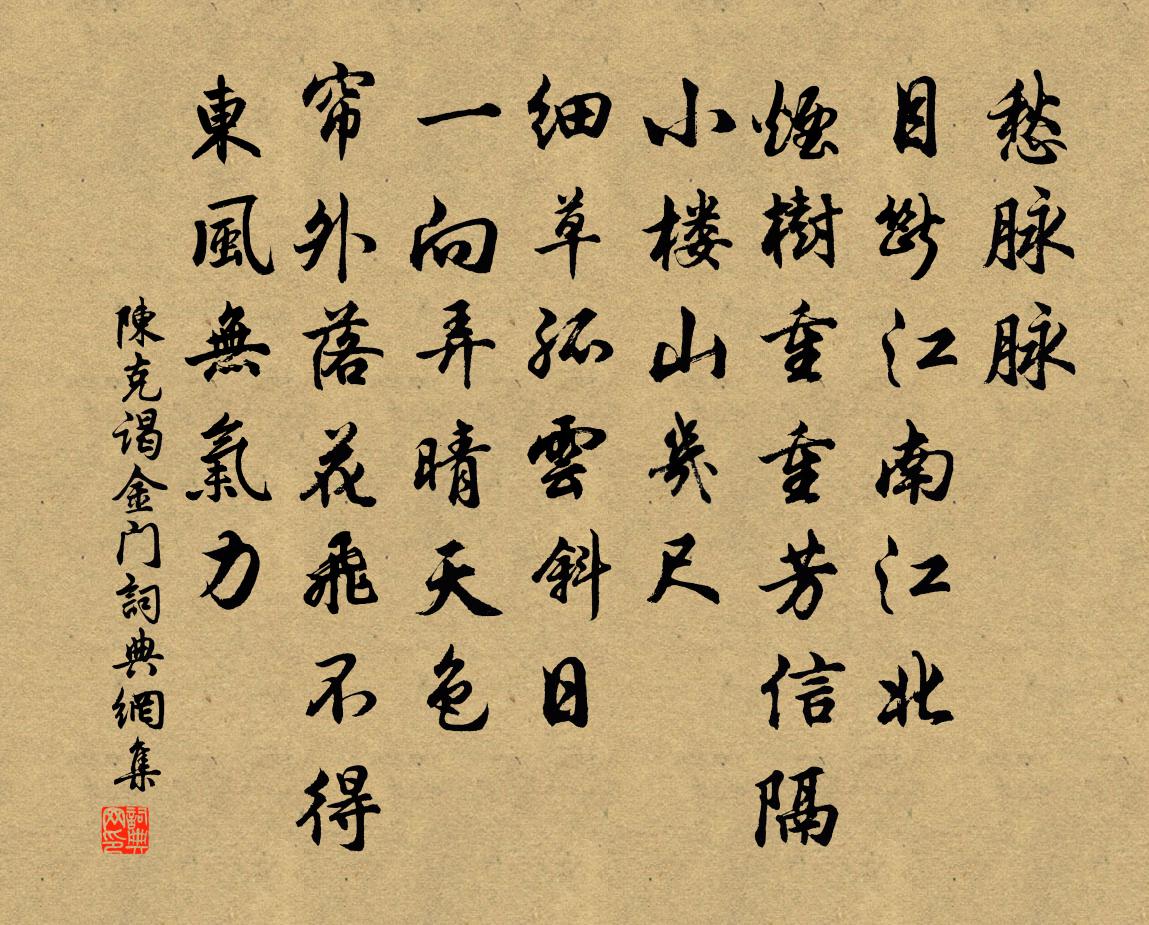 愁脉脉
目斷江南江北
煙樹重重芳信隔
小楼山幾尺
細草孤雲斜日
一向弄晴天色
帘外落花飛不得
東風無氣力
陳克谒金门詞典網集
詞典网印